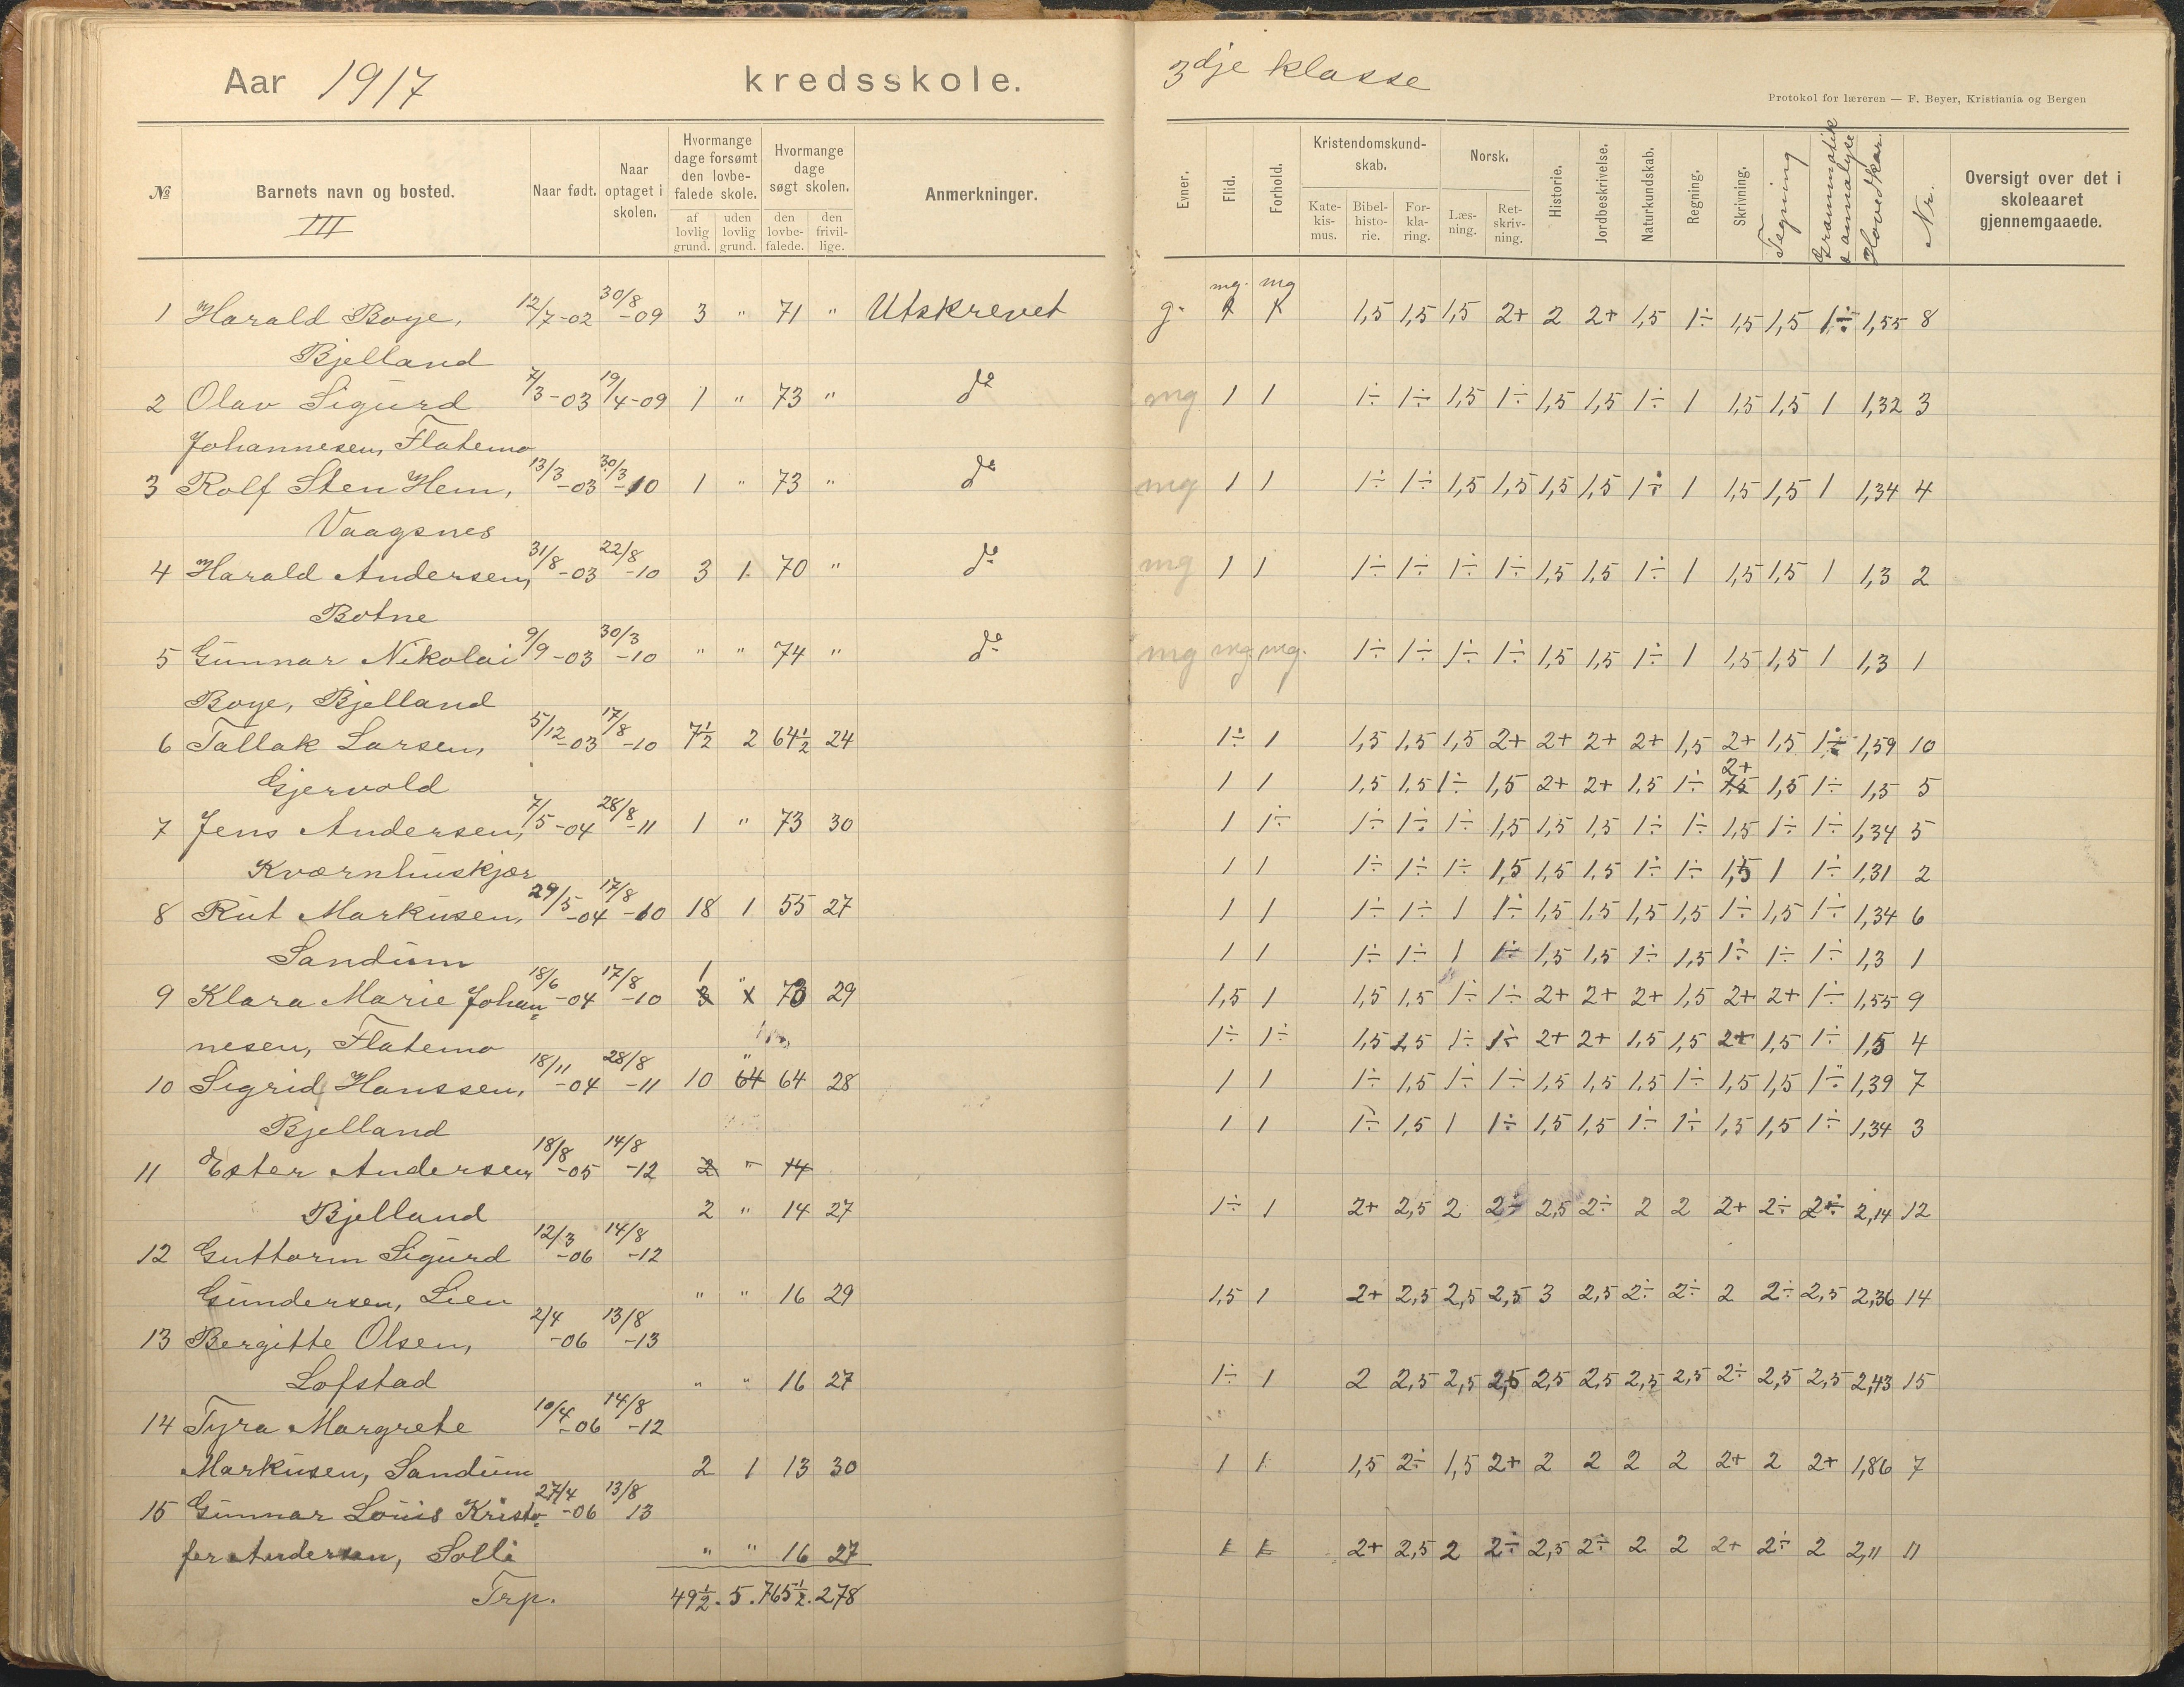 Aar 1917 kredsskole.
№ Barnets navn og bosted. Naar født. Naar optaget i skolen. Hvormange dage forsømt den lovbefalede skole. af lovlig grund. uden lovlig grund. Hvormange dage søgt skolen. den lovbefalede. den frivillige. Anmerkninger.
III
1 Harald Boye, 12/7-02 30/8-09 3 " 71 " Utskrevet
Bjelland
2 Olav Sigurd 7/3-03 19/4-09 1 " 73 " do
Johannesen, Flatemo
3 Rolf Sten Hem, 13/3-03 30/3-10 1 " 73 " do
Vaagsnes
4 Harald Andersen, 31/8-03 22/8-10 3 1 70 " do
Botne
5 Gunnar Nikolai 9/9-03 30/3-10 " " 74 " do
Boye, Bjelland
6 Tallak Larsen, 5/12-03 17/8-10 7½ 2 64½ 24
Gjervold
7 Jens Andersen, 7/5-04 28/8-11 1 " 73 30
Kværnhuskjær
8 Rut Markusen, 29/5-04 17/8-10 18 1 55 27
Sandum
9 Klara Marie Johan= 18/6-04 17/8-10 1 " 73 29
nesen, Flatemo
10 Sigrid Hanssen, 18/11-04 28/8-11 10 " 64 64 28
Bjelland
11 Ester Andersen 18/8-05 14/8-12 2 " 14
Bjelland 2 " 14 27
12 Guttorm Sigurd 12/3-06 14/8-12
Gundersen, Lien " " 16 29
13 Bergitte Olsen, 2/4-06 13/8-13
Lofstad " " 16 27
14 Tyra Margrete 10/4-06 14/8-12
Markusen, Sandum 2 1 13 30
15 Gunnar Louis Kristo= 27/4-06 13/8 13
fer Andersen, Solli " " 16 27
Trp. 49½. 5. 765½. 278
3dje klasse
Protokol for læreren — F. Beyer, Kristiania og Bergen
Evner. Flid. Forhold. Kristendomskundskab. Katekismus. Bibelhistorie. Forklaring. Norsk. Læsning. Retskrivning. Historie. Jordbeskrivelse. Naturkundskab. Regning. Skrivning. Tegning Grammatik & annalyse Hovedkar. Nr. Oversigt over det i skoleaaret gjennemgaaede.
mg. mg
g. 1 1 1,5 1,5 1,5 2+ 2 2+ 1,5 1÷ 1,5 1,5 1÷ 1,55 8
mg 1 1 1÷ 1÷ 1,5 1÷ 1,5 1,5 1÷ 1 1,5 1,5 1 1,32 3
mg 1 1 1÷ 1÷ 1,5 1,5 1,5 1,5 1÷ 1 1,5 1,5 1 1,34 4
mg 1 1 1÷ 1÷ 1÷ 1÷ 1,5 1,5 1÷ 1 1,5 1,5 1 1,3 2
mg mg. mg. 1÷ 1÷ 1÷ 1÷ 1,5 1,5 1÷ 1 1,5 1,5 1 1,3 1
1÷ 1 1,5 1,5 1,5 2+ 2+ 2+ 2+ 1,5 2+ 1,5 1÷ 1,59 10
1 1 1,5 1,5 1÷ 1,5 2+ 2+ 1,5 1÷ 2+ 1,5 1÷ 1,5 5
1 1÷ 1÷ 1÷ 1÷ 1,5 1,5 1,5 1÷ 1÷ 1,5 1÷ 1÷ 1,34 5
1 1 1÷ 1÷ 1÷ 1,5 1,5 1,5 1÷ 1÷ 1,5 1 1÷ 1,31 2
1 1 1÷ 1÷ 1 1÷ 1,5 1,5 1,5 1,5 1÷ 1,5 1÷ 1,34 6
1 1 1÷ 1÷ 1 1÷ 1,5 1,5 1÷ 1,5 1÷ 1÷ 1÷ 1,3 1
1,5 1 1,5 1,5 1÷ 1÷ 2+ 2+ 2+ 1,5 2+ 2+ 1÷ 1,55 9
1÷ 1÷ 1,5 1,5 1÷ 1÷ 2+ 2+ 1,5 1,5 2+ 1,5 1÷ 1,5 4
1 1 1÷ 1,5 1÷ 1÷ 1,5 1,5 1,5 1÷ 1,5 1,5 1÷ 1,39 7
1 1 1÷ 1,5 1 1÷ 1,5 1,5 1÷ 1÷ 1,5 1,5 1÷ 1,34 3
1÷ 1 2+ 2,5 2 2÷ 2,5 2÷ 2 2 2+ 2÷ 2÷ 2,14 12
1,5 1 2+ 2,5 2,5 2,5 3 2,5 2÷ 2÷ 2 2÷ 2,5 2,36 14
1÷ 1 2 2,5 2,5 2,5 2,5 2,5 2,5 2,5 2÷ 2,5 2,5 2,43 15
1 1 1,5 2÷ 1,5 2+ 2 2 2 2 2+ 2 2+ 1,86 7
1 1 2+ 2,5 2 2÷ 2,5 2÷ 2 2 2+ 2÷ 2 2,11 11